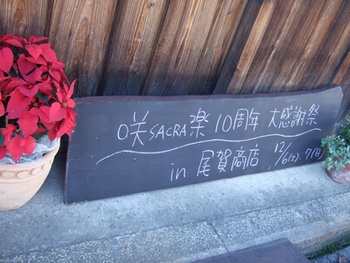 咲SACRA楽 10周年 大感謝祭
in 尾賀商店 12/6(土).7(日)